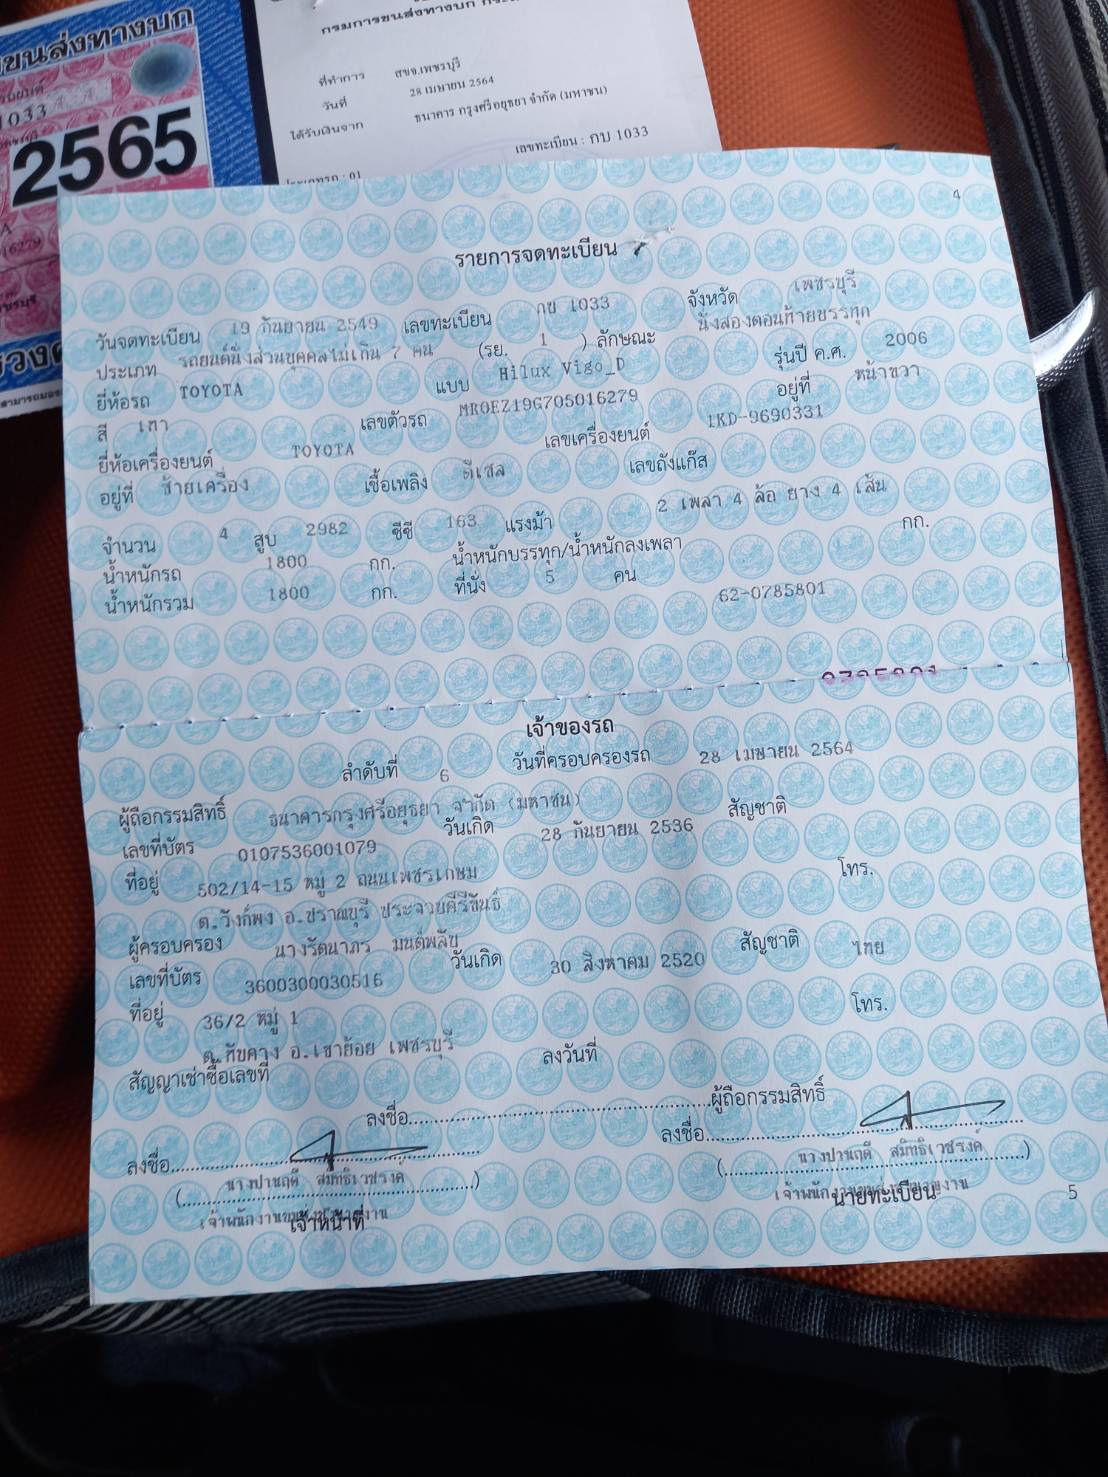 ขนส่งทางบก
1033
2565
16279
กรมการขนส่งทางบก
ที่ทำการ สขจ.เพชรบุรี
วันที่ 28 เมษายน 2564
ได้รับเงินจาก ธนาคาร กรุงศรีอยุธยา จำกัด (มหาชน)
เลขทะเบียน : กบ 1033
ประเภทรถ : 01
4
รายการจดทะเบียน
วันจดทะเบียน 19 กันยายน 2549 เลขทะเบียน กบ 1033 จังหวัด เพชรบุรี
ประเภท รถยนต์นั่งส่วนบุคคลไม่เกิน 7 คน (รย. 1 ) ลักษณะ นั่งสองตอนท้ายบรรทุก
ยี่ห้อรถ TOYOTA แบบ Hilux Vigo_D รุ่นปี ค.ศ. 2006
สี เทา เลขตัวรถ MR0EZ19G705016279 อยู่ที่ หน้าขวา
ยี่ห้อเครื่องยนต์ TOYOTA เลขเครื่องยนต์ 1KD-9690331
อยู่ที่ ซ้ายเครื่อง เชื้อเพลิง ดีเซล เลขถังแก๊ส
จำนวน 4 สูบ 2982 ซีซี 163 แรงม้า 2 เพลา 4 ล้อ ยาง 4 เส้น
น้ำหนักรถ 1800 กก. น้ำหนักบรรทุก/น้ำหนักลงเพลา กก.
น้ำหนักรวม 1800 กก. ที่นั่ง 5 คน
62-0785801
เจ้าของรถ
ลำดับที่ 6 วันที่ครอบครองรถ 28 เมษายน 2564
ผู้ถือกรรมสิทธิ์ ธนาคารกรุงศรีอยุธยา จำกัด (มหาชน)
เลขที่บัตร 0107536001079 วันเกิด 28 กันยายน 2536 สัญชาติ
ที่อยู่ 502/14-15 หมู่ 2 ถนนเพชรเกษม โทร.
ต.วังก์พง อ.ปราณบุรี ประจวบคีรีขันธ์
ผู้ครอบครอง นางรัตนาภร มนต์พลับ
เลขที่บัตร 3600300030516 วันเกิด 30 สิงหาคม 2520 สัญชาติ ไทย
ที่อยู่ 36/2 หมู่ 1 โทร.
ต.ทับคาง อ.เขาย้อย เพชรบุรี
สัญญาเช่าซื้อเลขที่ ลงวันที่
ลงชื่อ ผู้ถือกรรมสิทธิ์
ลงชื่อ ลงชื่อ
(นางปานฤดี สมิทธิเวชรงค์) (นางปานฤดี สมิทธิเวชรงค์)
เจ้าหน้าที่ นายทะเบียน
5